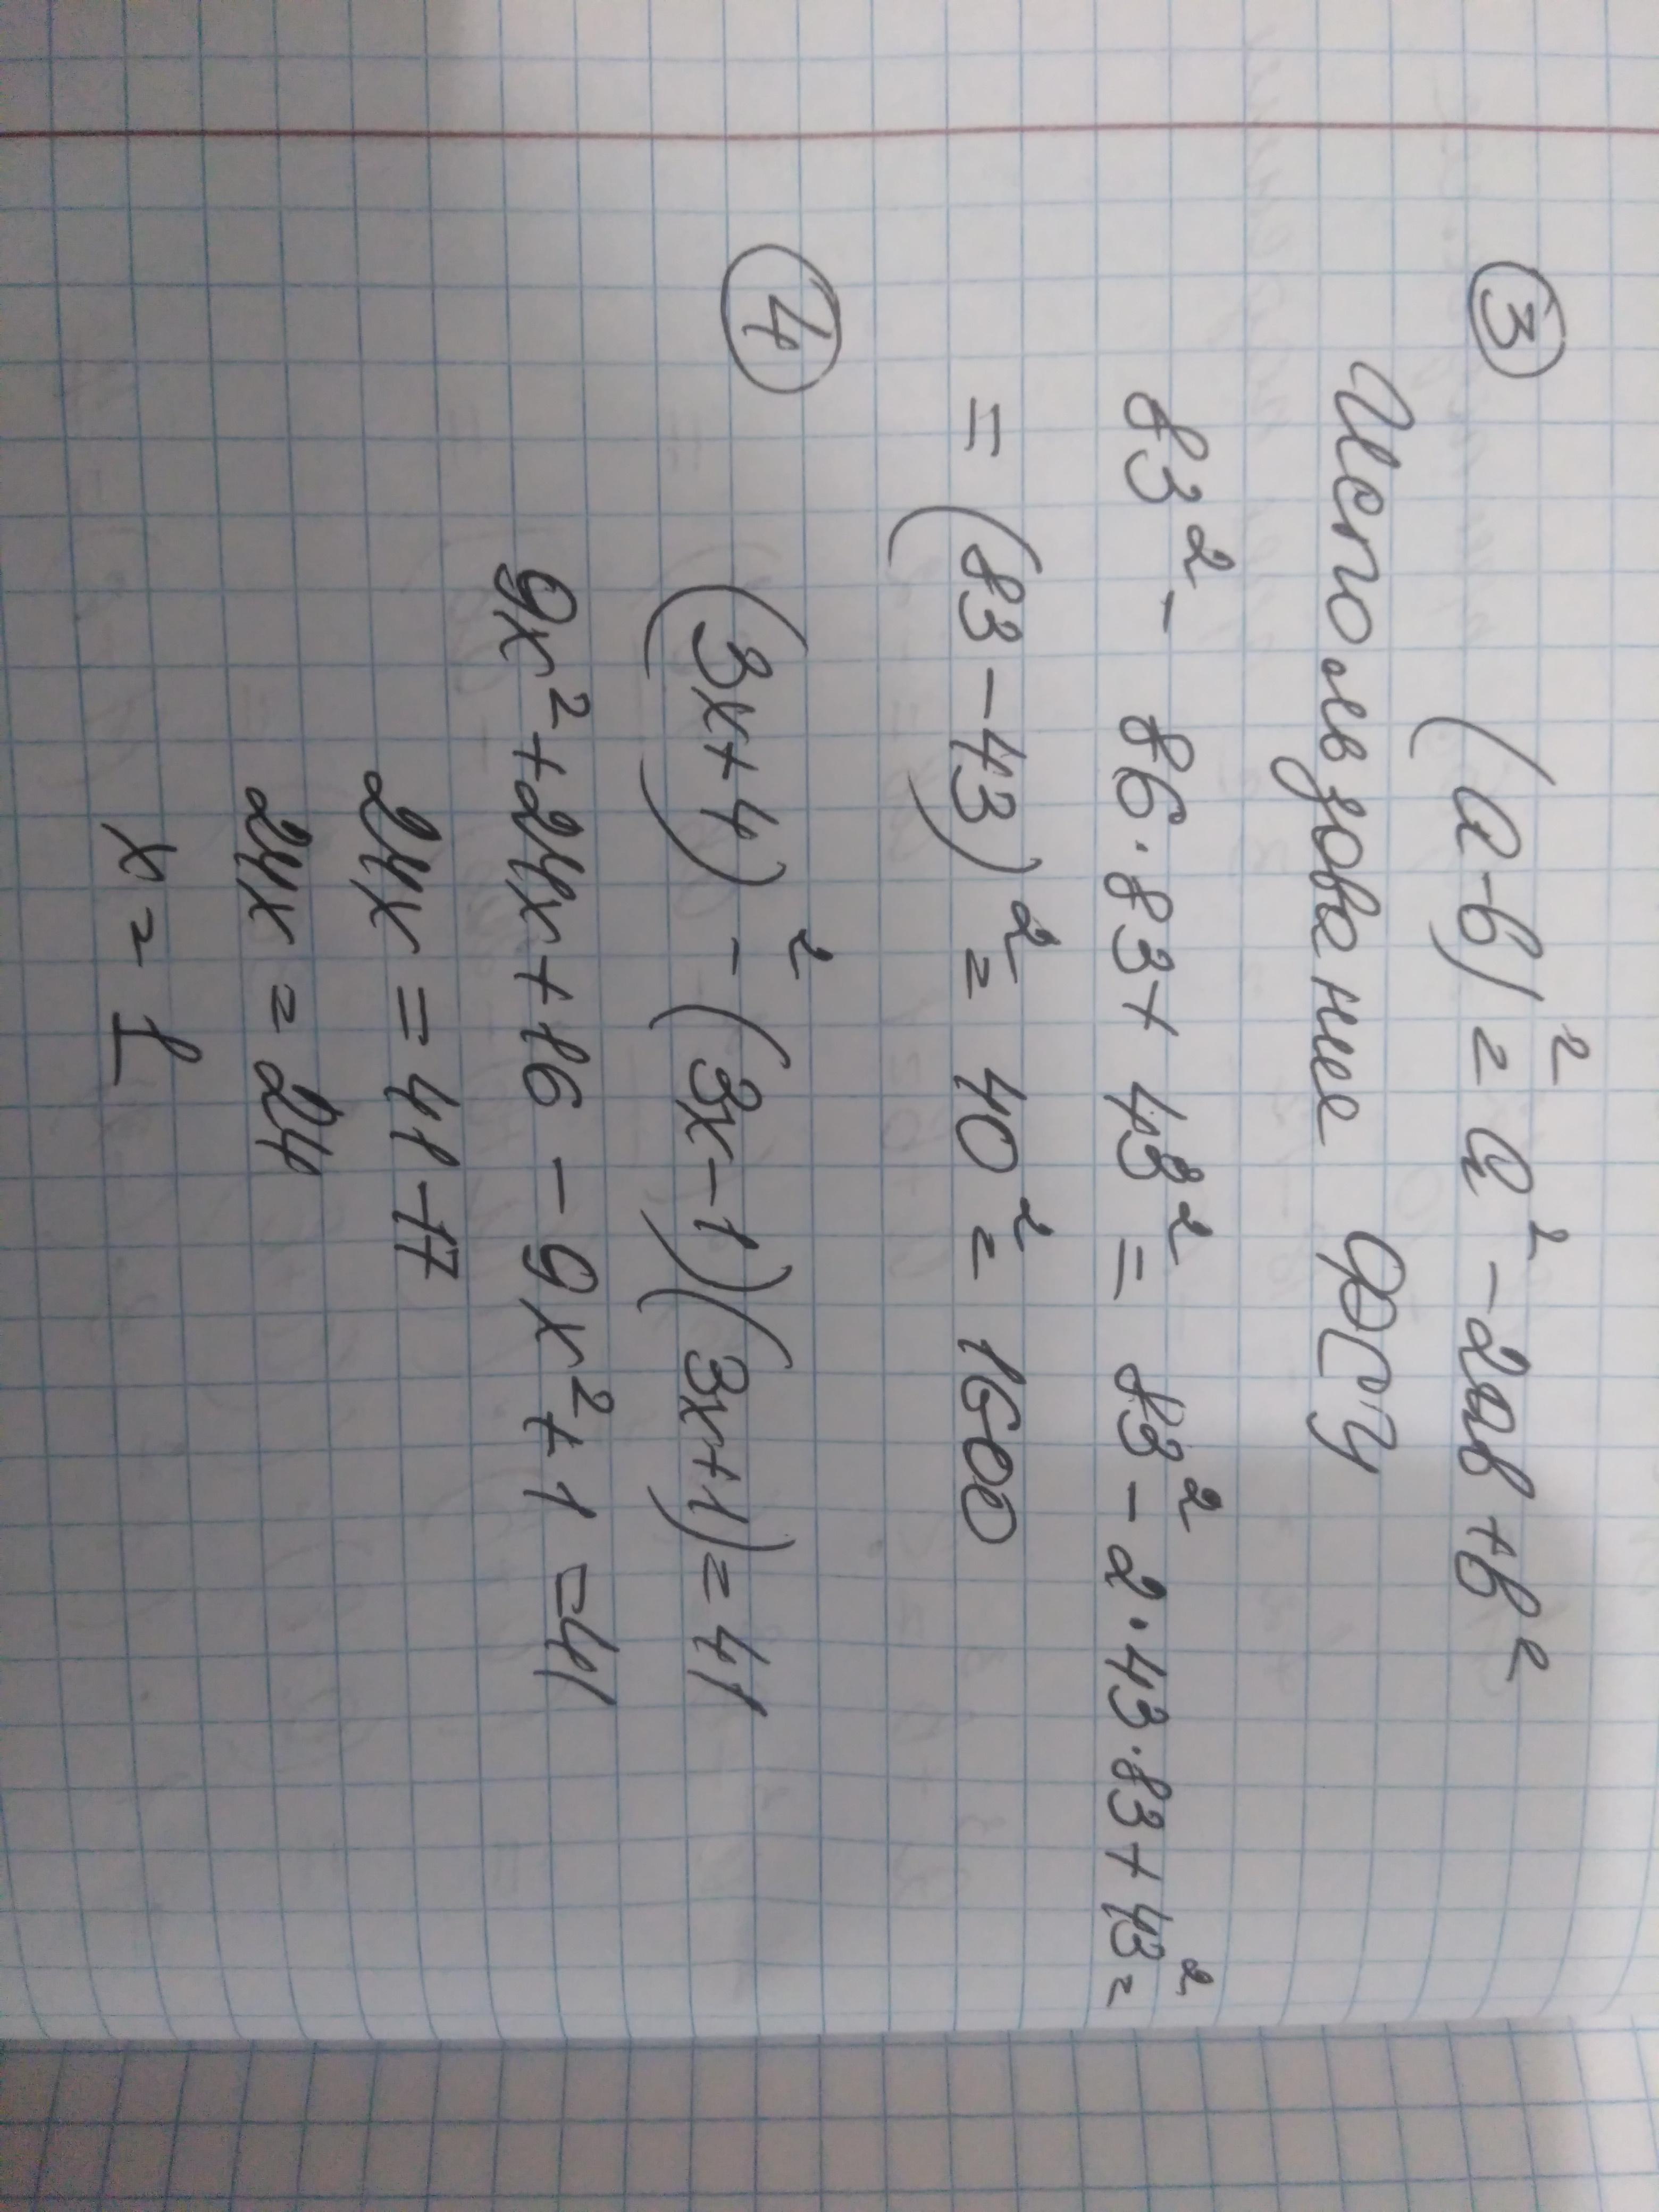 ③ (a-в)² = a² - 2ав + в²
Использование ФСУ
83² - 86·83 + 43² = 83² - 2·43·83 + 43² =
= (83-43)² = 40² = 1600
④ (3x+4)² - (3x-1)(3x+1) = 41
9x² + 24x + 16 - 9x² + 1 = 41
24x = 41-17
24x = 24
x = 1